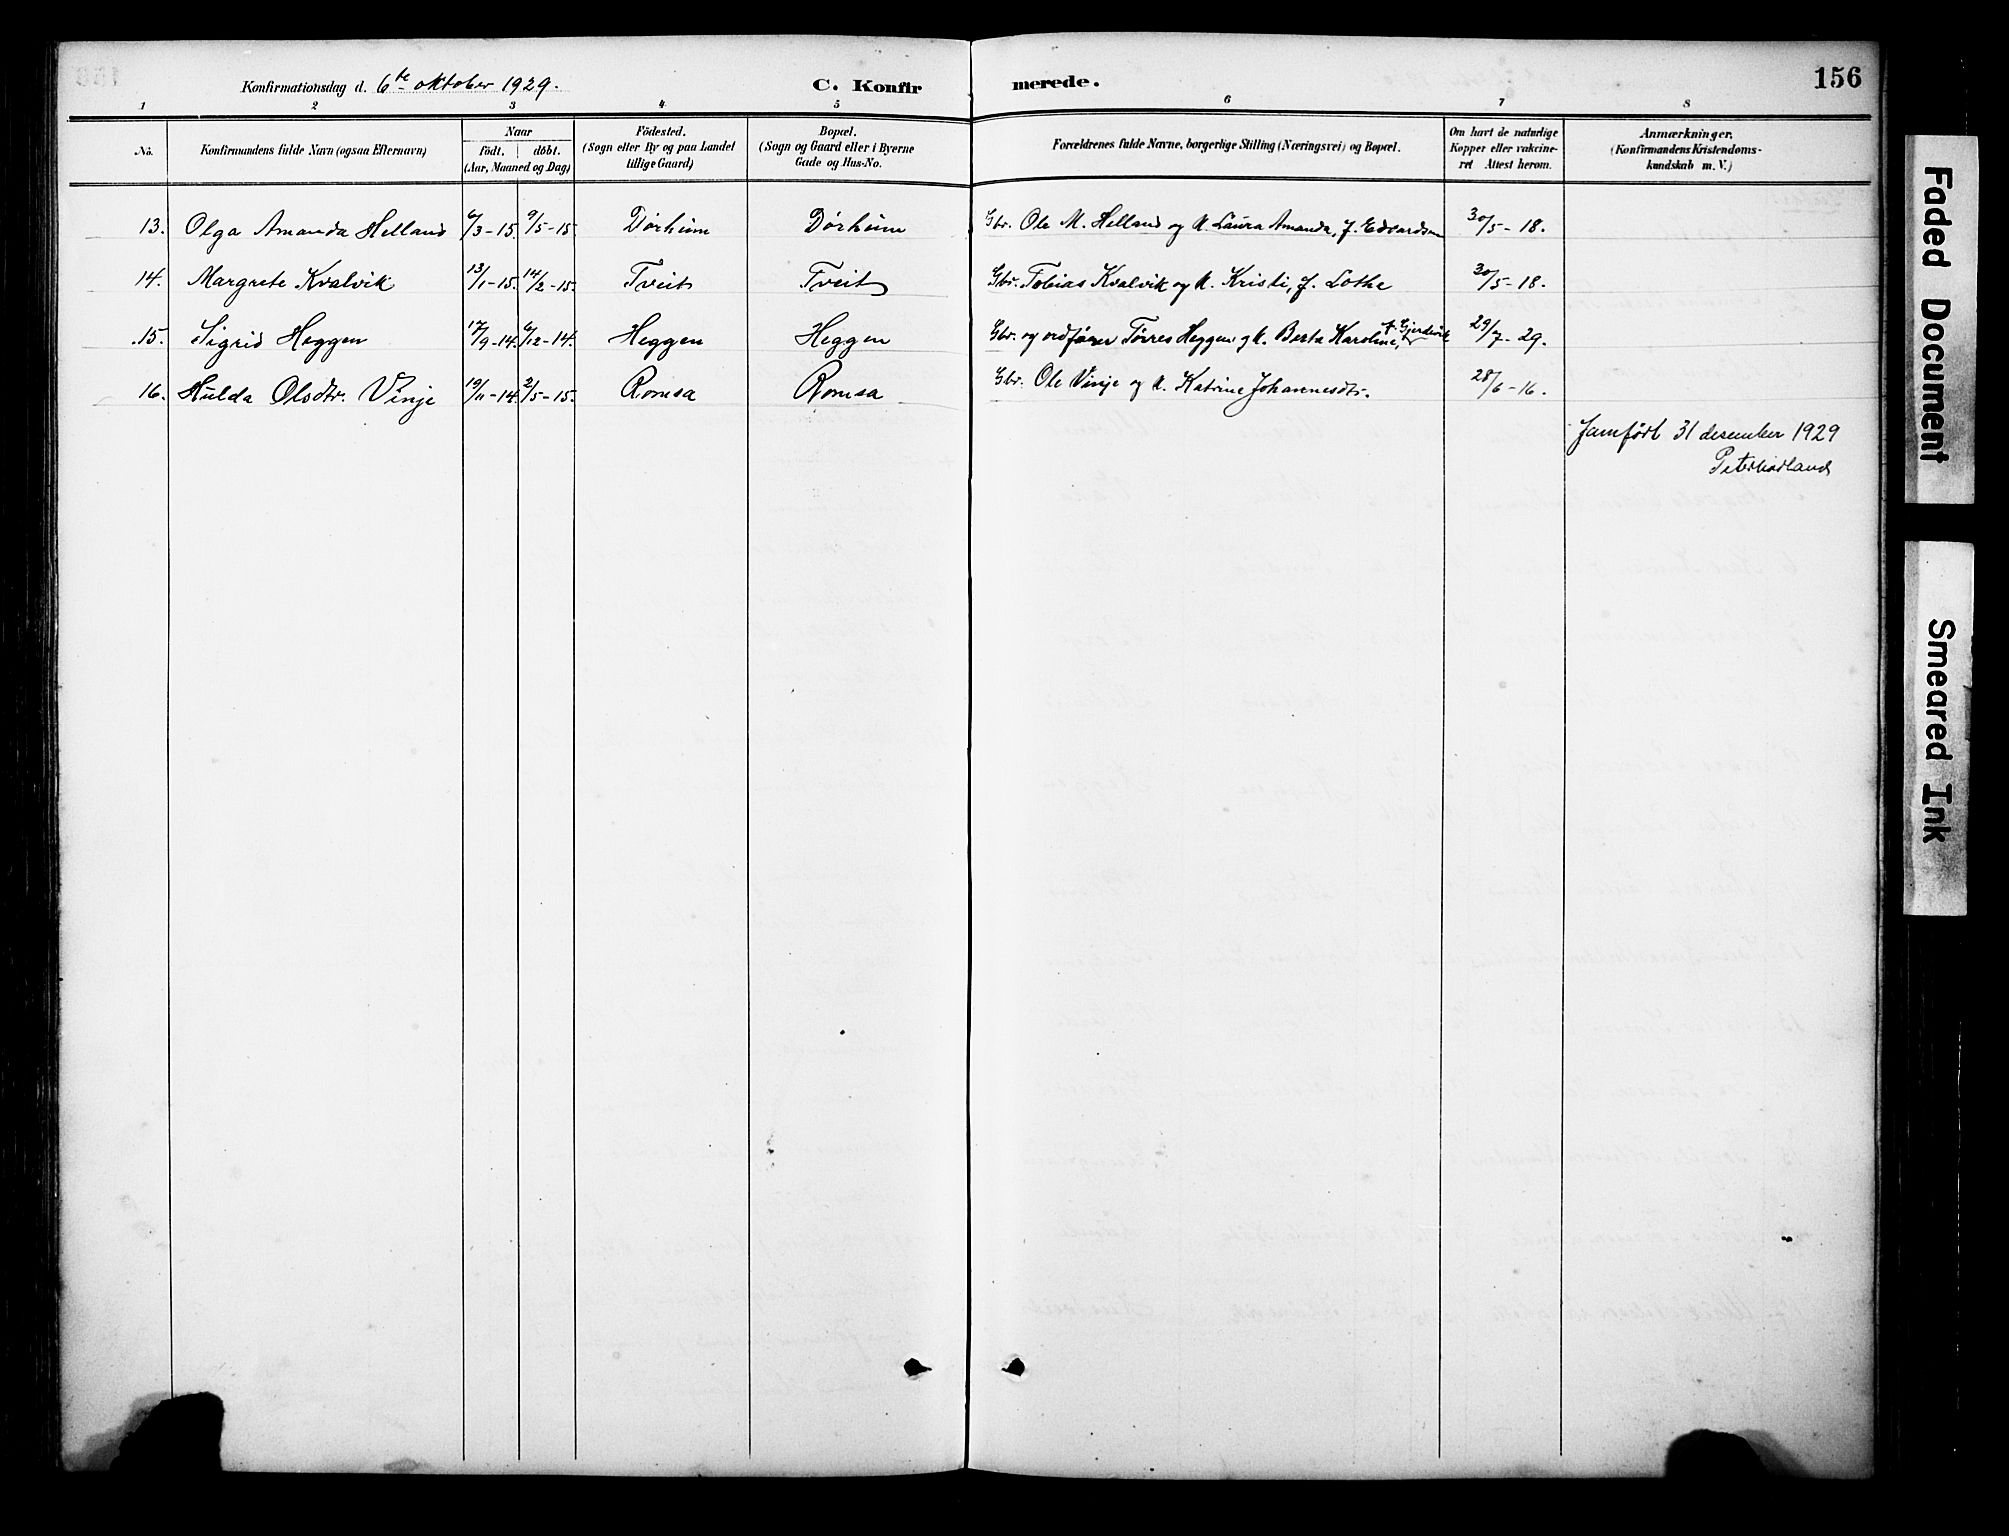 156
Konfirmationsdag d. 6te oktober 1929.
C. Konfirmerede.
1 2 3 4 5 6 7 8
No.
Konfirmandens fulde Navn (ogsaa Efternavn)
Naar
födt. döbt.
(Aar, Maaned og Dag)
Födested.
(Sogn eller By og paa Landet
tillige Gaard)
Bopæl.
(Sogn og Gaard eller i Byerne
Gade og Hus-No.
Forældrenes fulde Navne, borgerlige Stilling (Næringsvei) og Bopæl.
Om havt de naturlige
Kopper eller vakcine-
ret Attest herom.
Anmærkninger.
(Konfirmandens Kristendoms-
kundskab m. V.)
13. Olga Amanda Helland 6/3-15. 9/5-15. Dörheim Dörheim Gbr. Ole M. Helland og k. Laura Amanda, f. Edvardsen 30/5-18.
14. Margrete Kvalvik 13/1-15. 14/2-15 Tveit Tveit Gbr. Tobias Kvalvik og k. Kristi, f. Lothe 30/5-18.
15. Sigrid Heggen 17/9-14. 6/12-14. Heggen Heggen Gbr. og ordförer Törres Heggen og k. Berta Karoline, f. Gjerdevik 29/7-29.
16. Hulda Olsdtr. Vinje 19/11-14. 2/5-15. Romsa Romsa Gbr. Ole Vinje og k. Katrine Johannesdtr. 28/6-16.
Jamfört 31 desember 1929
Peter Hovland
Faded Document
Smeared Ink